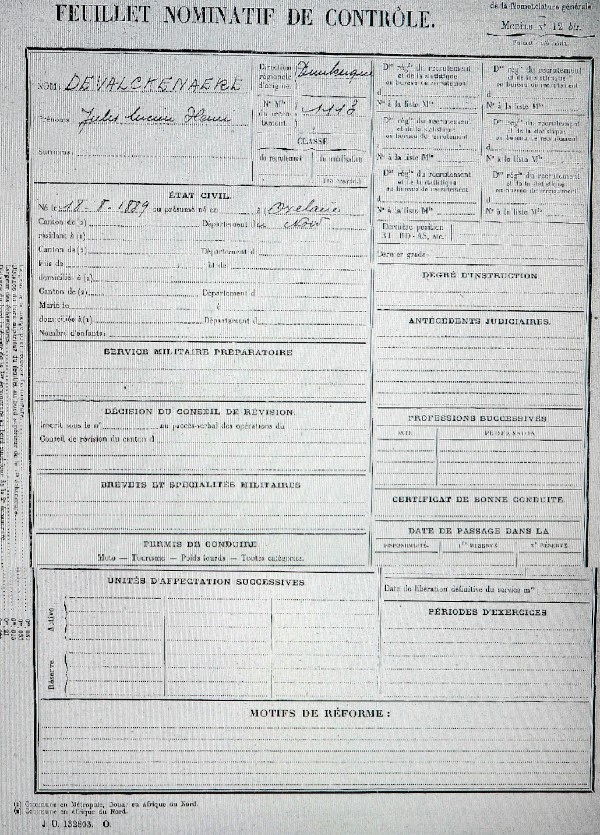 FEUILLET NOMINATIF DE CONTRÔLE.
de la Nomenclature générale
Modèle N° 12 bis.
NOM: DEVALCKENAERE
Prénoms: Jules Lucien Henri
Surnoms:
Direction régionale d'origine: Dunkerque
N° Mle du recrutement: 1113
CLASSE
de recrutement
de mobilisation
Don régle du recrutement et de la statistique
ou bureau de recrutement
d
N° à la liste Mle
Don régle du recrutement et de la statistique
ou bureau de recrutement
d
N° à la liste Mle
Don régle du recrutement et de la statistique
ou bureau de recrutement
d
N° à la liste Mle
Don régle du recrutement et de la statistique
ou bureau de recrutement
d
N° à la liste Mle
Don régle du recrutement et de la statistique
ou bureau de recrutement
d
N° à la liste Mle
Don régle du recrutement et de la statistique
ou bureau de recrutement
d
N° à la liste Mle
Dernière position
Dernier grade
ÉTAT CIVIL.
Né le 18-8-1889 ou présumé né en à
Canton de (2) Département de Nord
résidant à (1)
Canton de (2) Département d
fils de et de
domiciliés à (1)
Canton de (2) Département d
Marié le à
domiciliée à (1) Département d
Nombre d'enfants:
SERVICE MILITAIRE PRÉPARATOIRE
DÉCISION DU CONSEIL DE RÉVISION.
Inscrit sous le n° au procès-verbal des opérations du
Conseil de révision du canton d
BREVETS ET SPÉCIALITÉS MILITAIRES
PERMIS DE CONDUIRE
Moto — Tourisme — Poids lourds — Toutes catégories.
DEGRÉ D'INSTRUCTION
ANTÉCÉDENTS JUDICIAIRES.
PROFESSIONS SUCCESSIVES
DATE PROFESSION
CERTIFICAT DE BONNE CONDUITE
DATE DE PASSAGE DANS LA
DISPONIBILITÉ. 1re RÉSERVE 2e RÉSERVE
UNITÉS D'AFFECTATION SUCCESSIVES
Active
Réserve
Date de libération définitive du service me
PÉRIODES D'EXERCICES
MOTIFS DE RÉFORME :
(1) Commune en Métropole, Douar en Afrique du Nord.
(2) Commune en Afrique du Nord.
J. U. 132803. O.